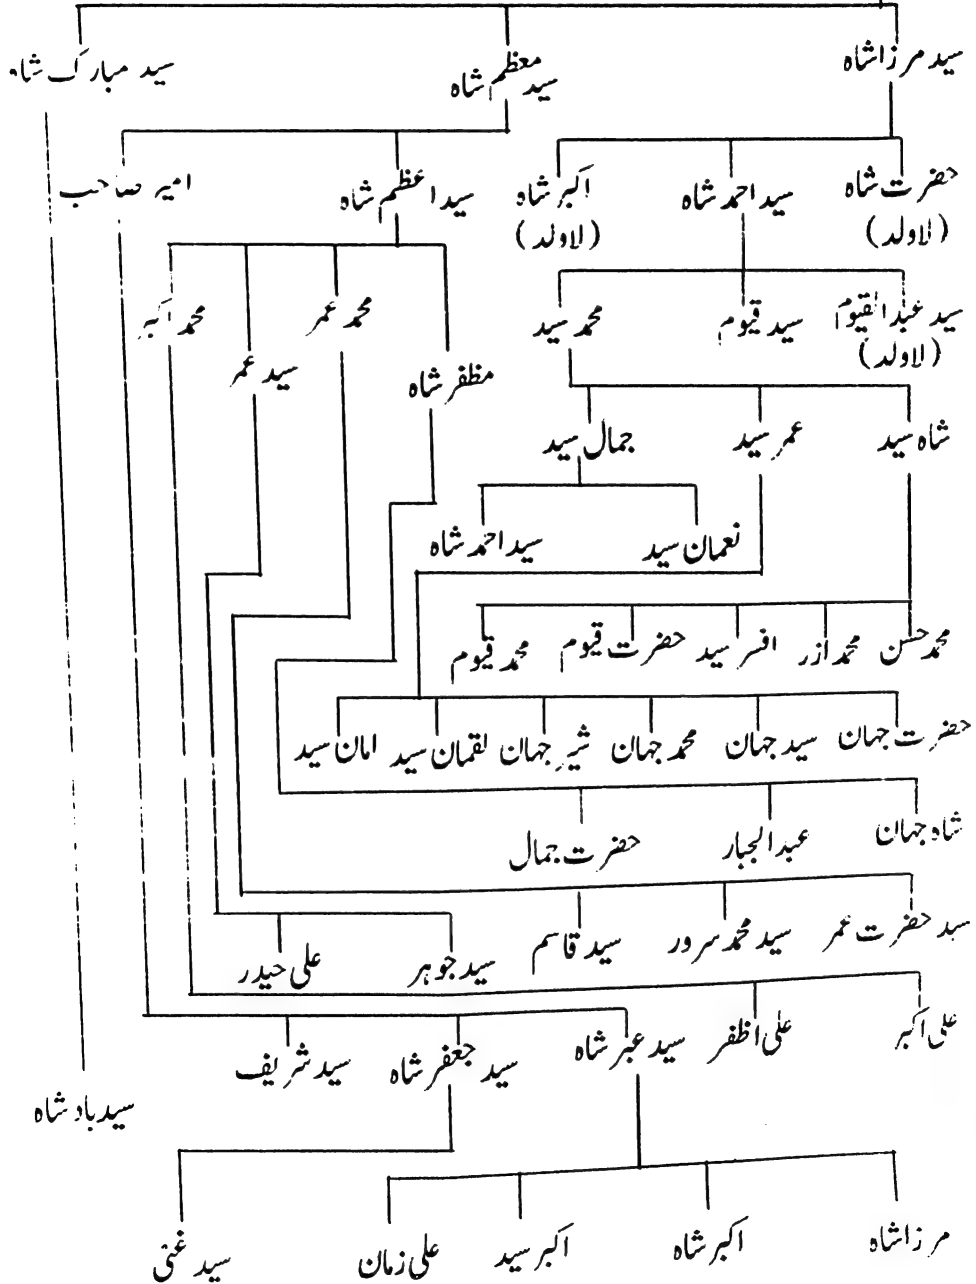 سید مرزا شاہ
سید معظم شاہ
سید مبارک شاہ
حضرت شاہ
(لاولد)
سید احمد شاہ
اکبر شاہ
(لاولد)
سید اعظم شاہ
امیر صاحب
سید عبدالقیوم
(لاولد)
سید قیوم
محمد سید
محمد عمر
محمد اکبر
سید عمر
مظفر شاہ
شاہ سید
عمر سید
جمال سید
نعمان سید
سید احمد شاہ
محمد حسن
محمد ازر
افسر سید
حضرت قیوم
محمد قیوم
حضرت جہان
سید جہان
محمد جہان
شیر جہان
لقمان سید
امان سید
شاہ جہان
عبدالجبار
حضرت جمال
سید حضرت عمر
سید محمد سرور
سید قاسم
سید جوہر
علی حیدر
علی اکبر
علی اظفر
سید عبر شاہ
سید جعفر شاہ
سید شریف
سید بادشاہ
مرزا شاہ
اکبر شاہ
اکبر سید
علی زمان
سید غنی